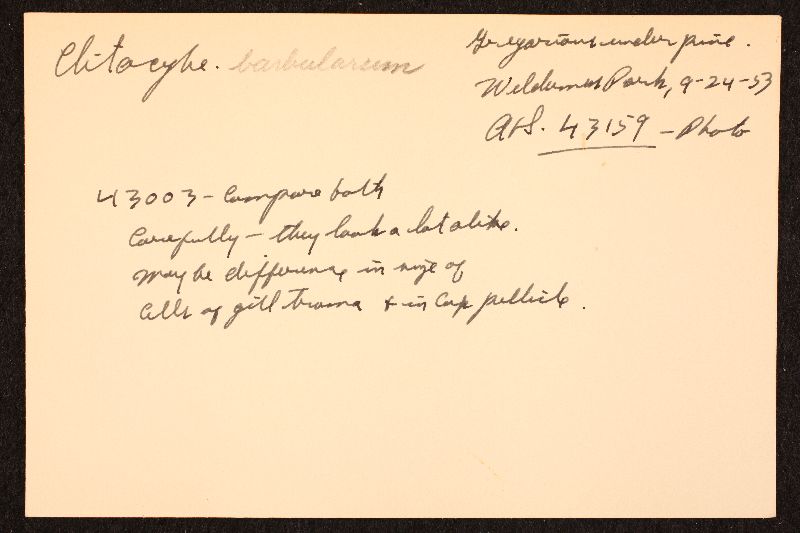 Clitocybe. barbularum
Gregarious under pine.
Wilderness Park, 9-24-53
AHS. 43159 - Photo
43003 - Compare both
Carefully - they look a lot alike.
may be difference in size of
Cells of gill trama & in Cap pellicle.